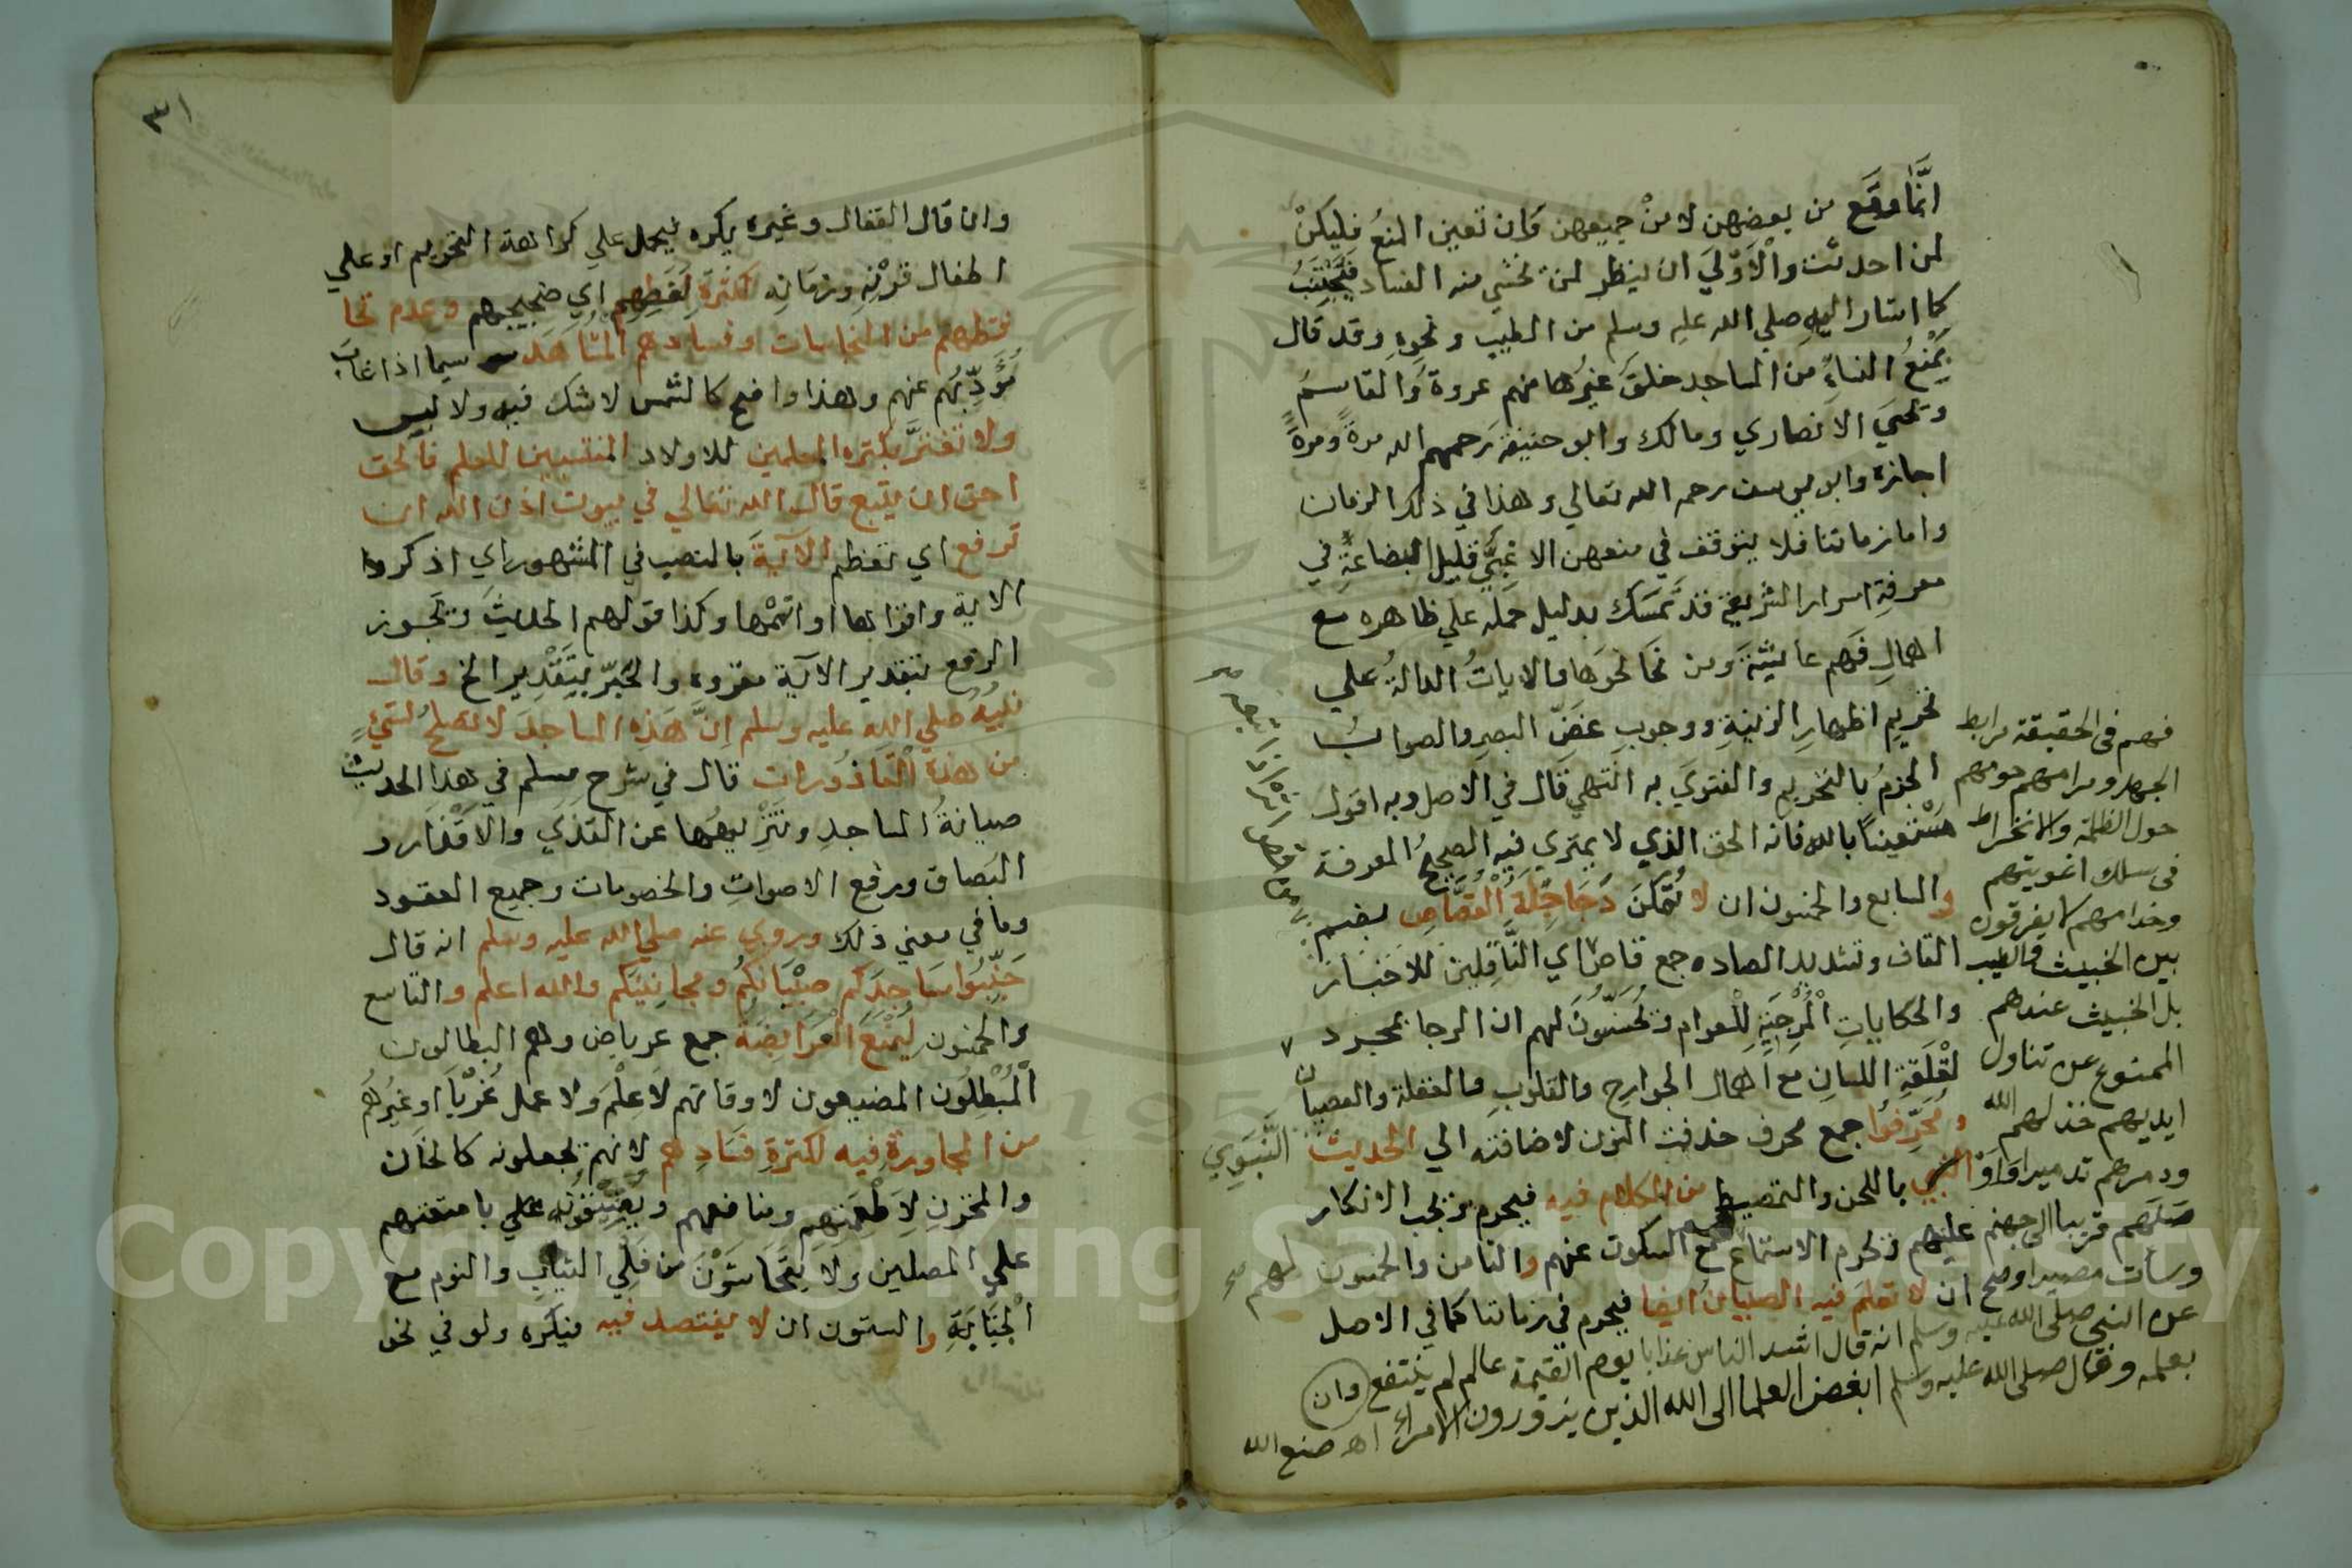 انَّما وقَع من بعضهن لا منْ جميعهن فان تعين المنعُ فليكنْ
لمن احدثت والْاَوْليَ ان ينظر لمن نخشي منه الفساد فيجتنبُ
كما اشار اليه صلي الله عليه وسلم من الطيب ونحوه وقد قال
بمنع النساءِ من المساجد خلق غيرُها منهم عروة والقاسم
ويحيي الانصاري ومالك وابو حنيفة رحمهم الله مرة ومرةً
اجازه وابو يوسف رحمه الله تعالي وهذا في ذلك الزمان
واما زماننا فلا يتوقف في منعهن الا غبيٌّ قليل البضاعةِ في
معرفة اسرار الشريعة قد تمسَك بدليل حمله علي ظاهره مع
اهمالِ فهم عايشة ومن نحا نحوها فالاياتُ الدالةُ علي
تحريم اظهارِ الزينةِ ووجوبِ غضّ البصرِ والصوابُ
الجزمُ بالتحريم والفتوي به انتهي قال في الاصل وبه اقول
مستعيناً بالله فانه الحق الذي لا يمتري فيه الصحيحُ المعرفة
والسابع والخمسون ان لا تُمكَّنَ دَجَاجِلَةُ القُصَّاصِ بضم
القاف وتشديد الصاد جمع قاص اي النَّاقلين للاخبار
والحكاياتِ الْمُرجيَةِ للعوام وتُحسّنون لهم ان الرجا بمجرد
لقْلَقةِ اللسانِ مع اهمال الجوارح والقلوبِ فالغفلة والعصيان
ومُحَرِّفوا جمع محرف حذفت النون لاضافته الي الحديث النَّبَوِي
باللحن والتمصيط من الكلام فيه فيحرم وتجب الانكار
عليهم وتحرم الاستماع لهم مع السكوت عنهم والثامن والخمسون
ان لا تعلم فيه الصبيانُ ايضا فيحرم في زماننا كما في الاصل
وان
فهم في الحقيقة مرابط
الجهل ومرامهم حومهم
حول الظلمة والانخراط
في سلك اغويتهم
وخدامهم لا يفرقون
بين الخبيث والطيب
بل الخبيث عندهم
الممنوع عن تناول
ايديهم خذلهم الله
ودمرهم تدميرا
وساءت مصيرا وصح
عن النبي صلي الله عليه وسلم انه قال اشد الناس عذابا يوم القيمة عالم لم ينتفع
بعلمه وقال صلي الله عليه وسلم ابغض العلما الي الله الذين يزورون الامراء اهـ صنع الله
٣١
وان قال القفال وغيره يكره فيحمل علي كراهة التحريم او علي
اطفال قرْنِه وزمَانِه لكثرةِ لغَطِهِم اي ضجيجهم وعدم تحا
فظهم من النجاسات وفسادهم المشاهَد سيما اذا غابَ
مُؤَدِّبُهم عنهم وهذا واضح كالشمس لا شك فيه ولا لبس
ولا تغترَّ بكثره المعلمين للاولاد المنتسبين للعلم فالحق
احق ان يتبع قال الله تعالي في بيوت اذن الله ان
ترفع اي تعظم الآيةَ بالنصب في المشهور اي اذكروا
الاية واقراها او اتمّها وكذا قولهم الحديثَ وتجوز
الرفع بتقدير الآية مقروء والخبرُ بتَقْدِير الخ وقال
نبيُّه صلي الله عليه وسلم اِنَّ هَذِه المساجدَ لا تصلح لشيءٍ
من هذهِ القاذُورات قال في شرح مسلم في هذا الحديث
صيانةُ المساجد وتنْزِيهُها عن القذي والاقْذار و
البصاق ورفعِ الاصواتِ والخصومات وجميع العقود
وما في معني ذلك وروي عنه صلي الله عليه وسلم انه قال
جَنِّبُوا مسَاجِدَكم صِبْيَانكُم ومجانِينَكم والله اعلم والتاسع
والخمسون ليُمْنَعَ العَرَابضَة جمع عرباض وهم البطالون
الْمُبْطِلُون المضيعون لاوقاتهم لا علْمَ ولا عمل غُرْبَا او غيرُهُم
من المجاورةِ فيه لكثرةِ فسَادِهم لانهم تجعلونه كالخان
والمخزنِ لاَطْعِمَتِهم ومنافعهم ويُضَيِّقُونَه علي بامتعتهم
علي المصلين ولا يتَحَاشَوْنَ من فَلْي الثيابِ والنوم مع
الْجَنَابَةِ والستون ان لا يفتصد فيه فيكره ولو في نحو